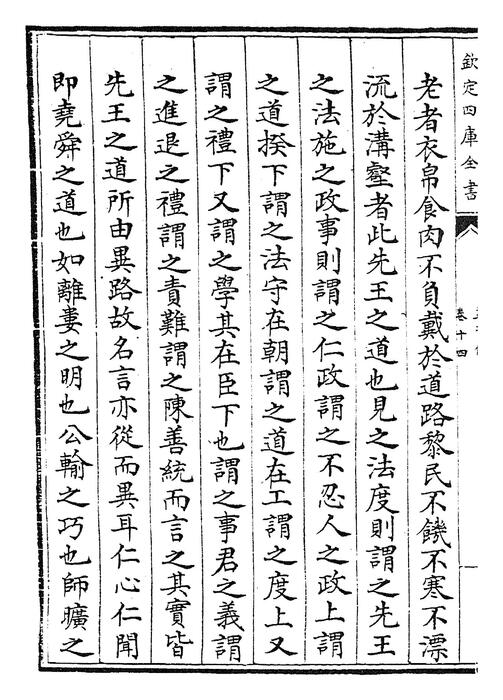 欽定四庫全書
卷十四
老者衣帛食肉不負戴於道路黎民不饑不寒不漂
流於溝壑者此先王之道也見之法度則謂之先王
之法施之政事則謂之仁政謂之不忍人之政上謂
之道揆下謂之法守在朝謂之道在工謂之度上又
謂之禮下又謂之學其在臣下也謂之事君之義謂
之進退之禮謂之責難謂之陳善統而言之其實皆
先王之道所由異路故名言亦從而異耳仁心仁聞
即堯舜之道也如離婁之明也公輸之巧也師曠之